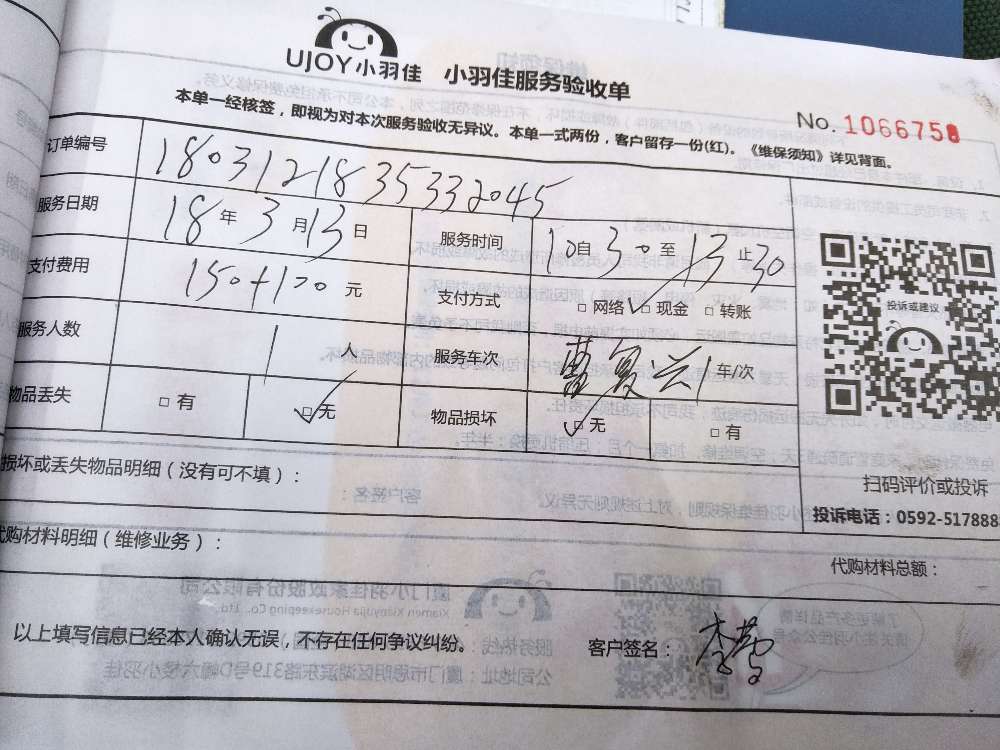 UJOY小羽佳 小羽佳服务验收单
本单一经核签，即视为对本次服务验收无异议。本单一式两份，客户留存一份(红)。《维保须知》详见背面。
No. 1066758
订单编号 1803121835332045
服务日期 18年3月13日 服务时间 10自30至13止30
支付费用 150+100元 支付方式 □网络 □现金 □转账
服务人数 1人 服务车次 曹复兴 1车/次
物品丢失 □有 □无 物品损坏 □无 □有
损坏或丢失物品明细（没有可不填）：
代购材料明细（维修业务）：
代购材料总额：
以上填写信息已经本人确认无误，不存在任何争议纠纷。 客户签名：
投诉或建议
扫码评价或投诉
投诉电话：0592-517888